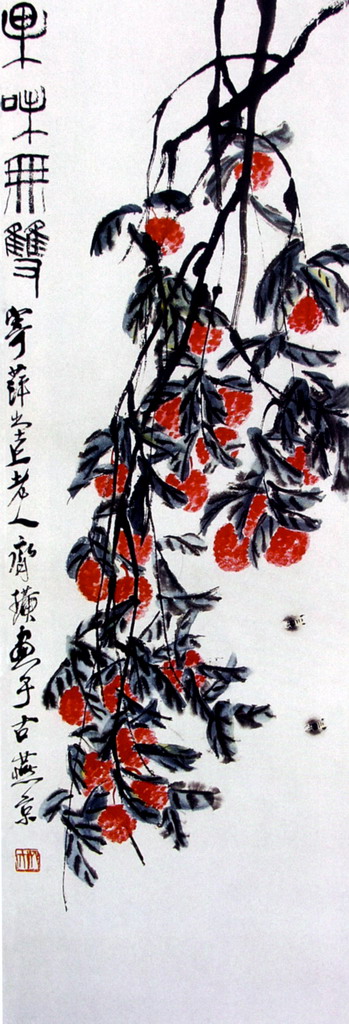 果味無雙
寄萍堂上老人齊璜畫于古燕京